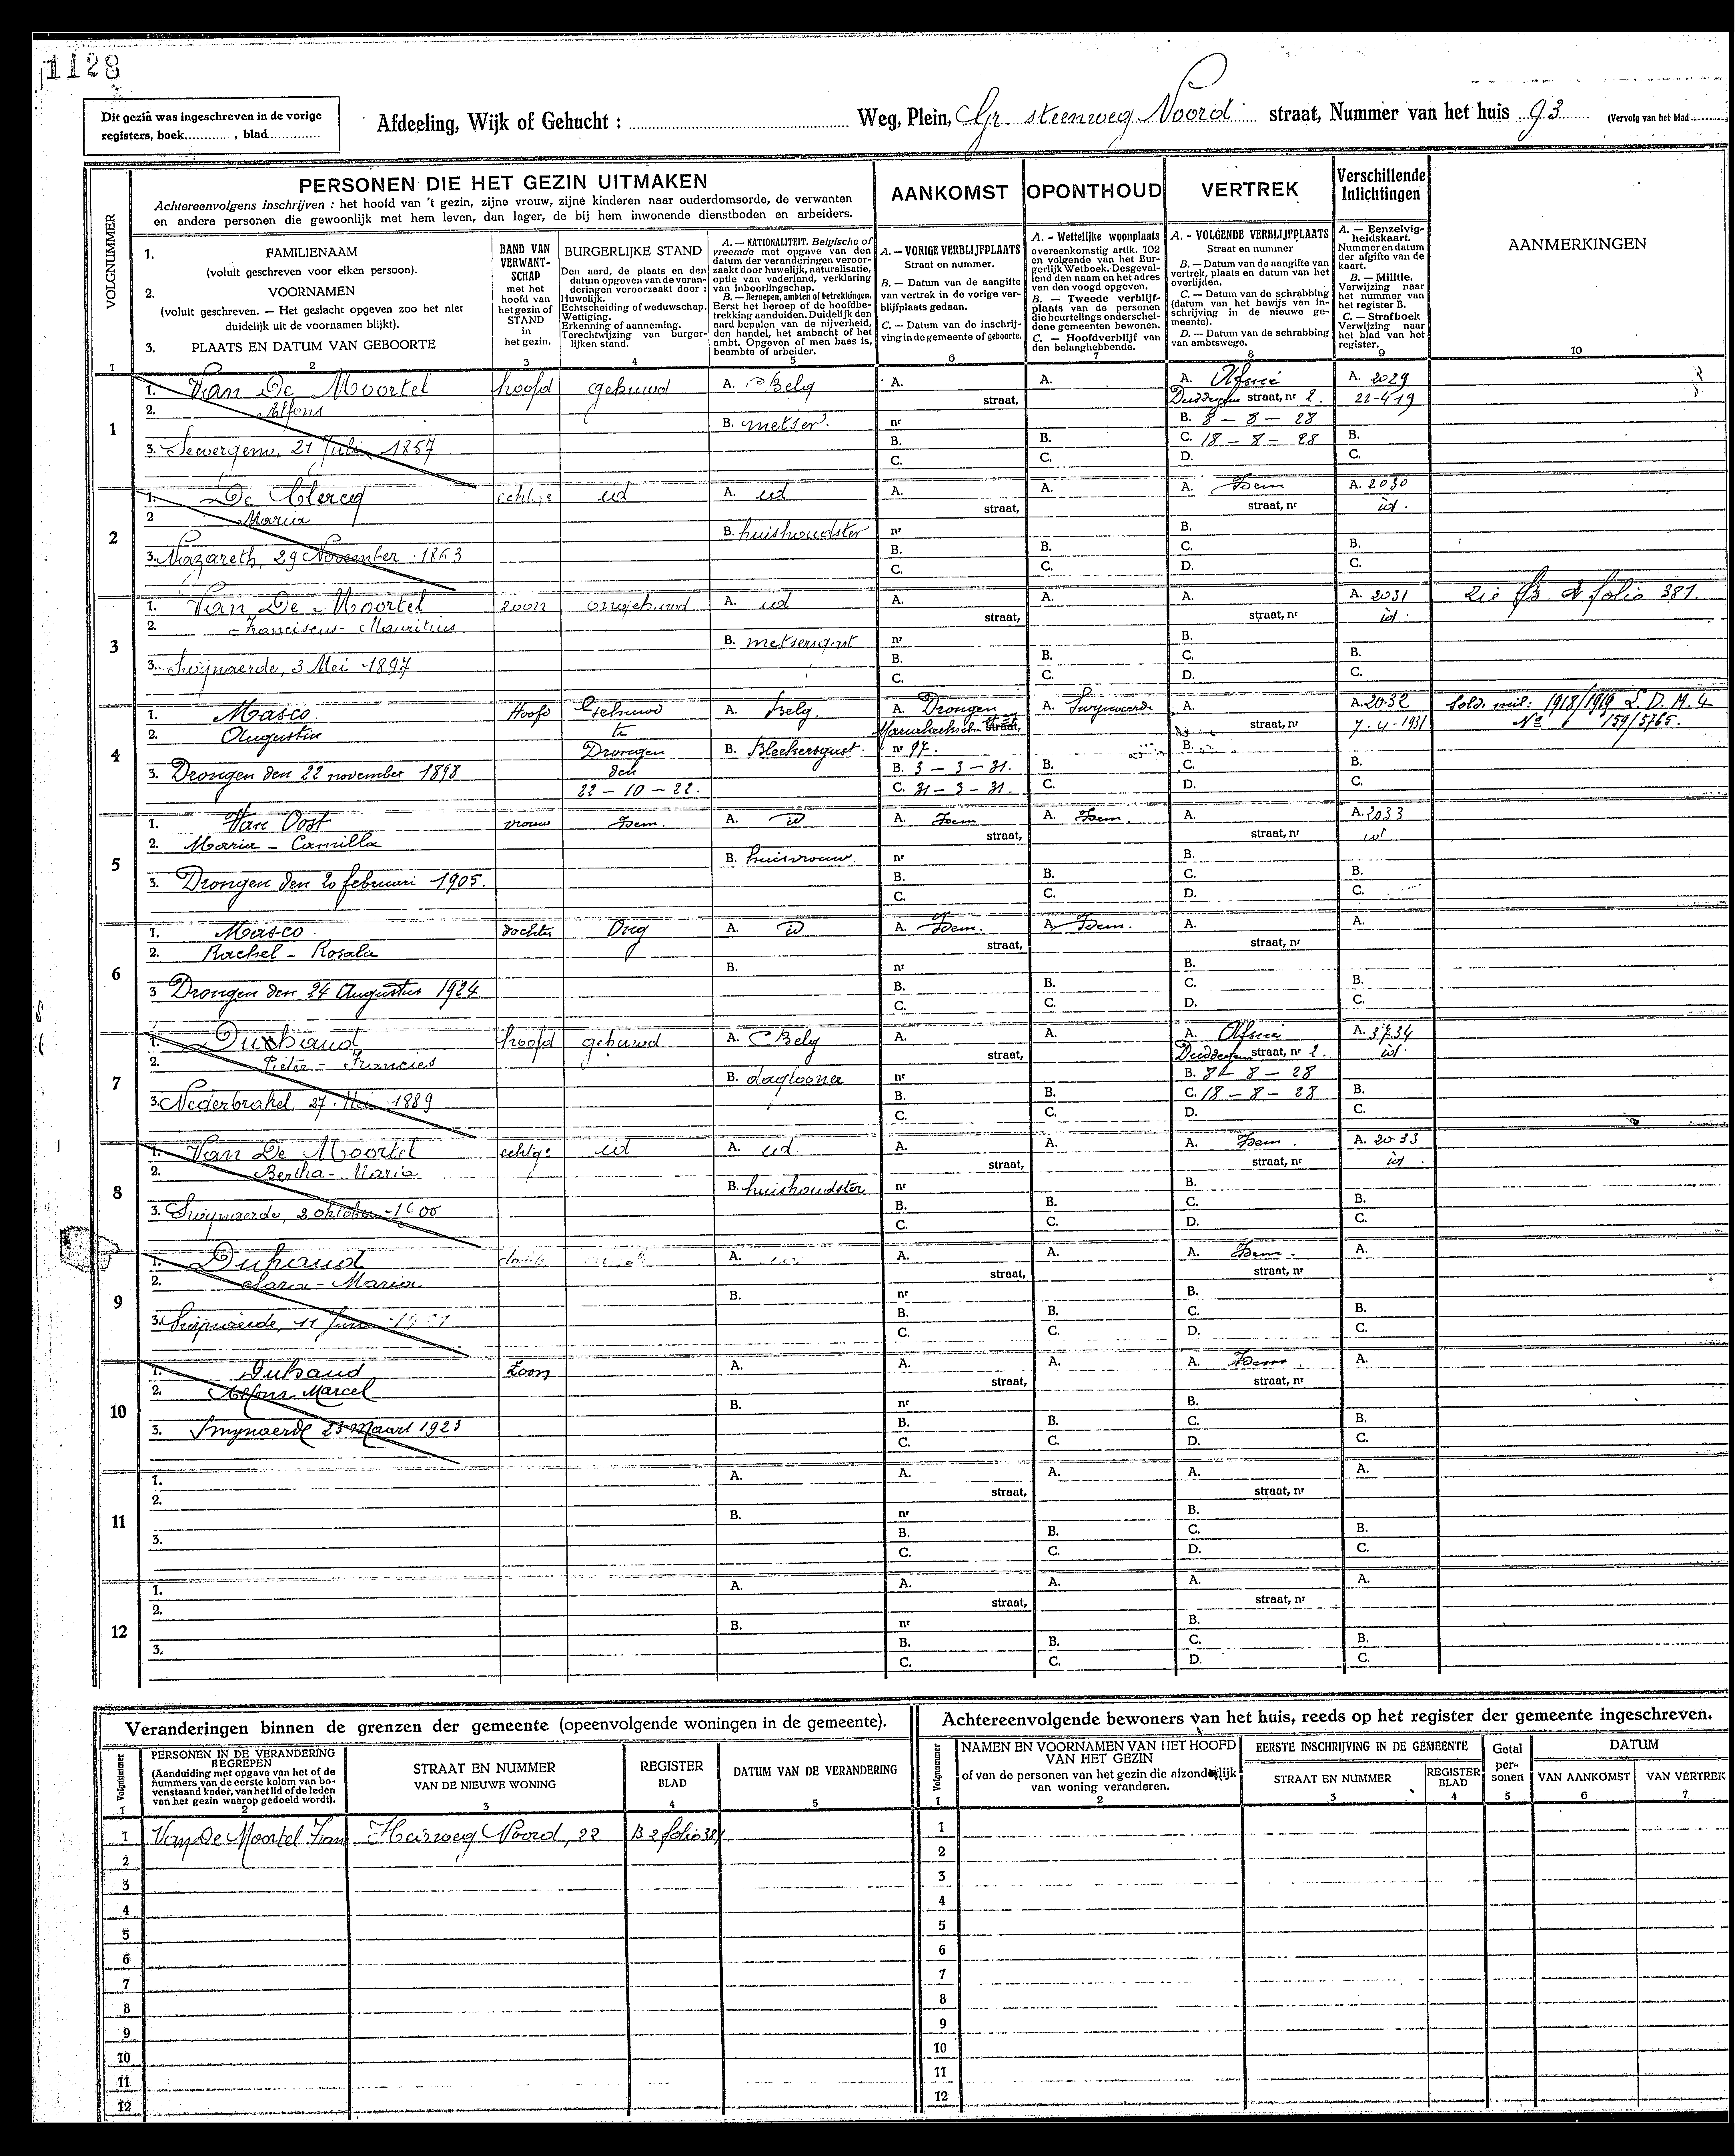 1128
Dit gezin was ingeschreven in de vorige
registers, boek............ , blad...............
Afdeeling, Wijk of Gehucht : ........ Weg, Plein, Gr. steenweg Noord straat, Nummer van het huis 93 (Vervolg van het blad
VOLGNUMMER
PERSONEN DIE HET GEZIN UITMAKEN
Achtereenvolgens inschrijven : het hoofd van 't gezin, zijne vrouw, zijne kinderen naar ouderdomsorde, de verwanten
en andere personen die gewoonlijk met hem leven, dan lager, de bij hem inwonende dienstboden en arbeiders.
AANKOMST OPONTHOUD VERTREK
Verschillende
Inlichtingen
AANMERKINGEN
1. FAMILIENAAM
(voluit geschreven voor elken persoon).
2. VOORNAMEN
(voluit geschreven. — Het geslacht opgeven zoo het niet
duidelijk uit de voornamen blijkt).
3. PLAATS EN DATUM VAN GEBOORTE
BAND VAN
VERWANT-
SCHAP
met het
hoofd van
het gezin of
STAND
in
het gezin.
BURGERLIJKE STAND
Den aard, de plaats en den
datum opgeven van de veran-
deringen veroorzaakt door :
Huwelijk.
Echtscheiding of weduwschap.
Wettiging.
Erkenning of aanneming.
Terechtwijzing van burger-
lijken stand.
A. — NATIONALITEIT. Belgische of
vreemde met opgave van den
datum der veranderingen veroor-
zaakt door huwelijk, naturalisatie,
optie van vaderland, verklaring
van inboorlingschap.
B. — Beroepen, ambten of betrekkingen.
Eerst het beroep of de hoofdbe-
trekking aanduiden. Duidelijk den
aard bepalen van de nijverheid,
den handel, het ambacht of het
ambt. Opgeven of men baas is,
beambte of arbeider.
A. — VORIGE VERBLIJFPLAATS
Straat en nummer.
B. — Datum van de aangifte
van vertrek in de vorige ver-
blijfplaats gedaan.
C. — Datum van de inschrij-
ving in de gemeente of geboorte.
A. - Wettelijke woonplaats
overeenkomstig artik. 102
en volgende van het Bur-
gerlijk Wetboek. Desgeval-
lend den naam en het adres
van den voogd opgeven.
B. — Tweede verblijf-
plaats van de personen
die beurtelings onderschei-
dene gemeenten bewonen.
C. — Hoofdverblijf van
den belanghebbende.
A. - VOLGENDE VERBLIJFPLAATS
Straat en nummer
B. — Datum van de aangifte van
vertrek, plaats en datum van het
overlijden.
C. — Datum van de schrabbing
(datum van het bewijs van in-
schrijving in de nieuwe ge-
meente).
D. — Datum van de schrabbing
van ambtswege.
A. — Eenzelvig-
heidskaart.
Nummer en datum
der afgifte van de
kaart.
B. — Militie.
Verwijzing naar
het nummer van
het register B.
C. — Strafboek
Verwijzing naar
het blad van het
register.
1 2 3 4 5 6 7 8 9 10
1
1. Van De Moortel hoofd gehuwd A. Belg A. straat, A. A. straat, nr 2. A. 2029
2. Alfons B. metser. nr B. 8 - 8 - 28 22-4-19
3. Severgem, 21 Juli 1857 B. B. C. 18 - 8 - 28 B.
C. C. D. C.
2
1. De Clercq id A. id A. straat, A. A. Idem straat, nr A. 2030
2 Maria B. huishoudster nr B. id.
3. Nazareth, 29 November 1863 B. B. C. B.
C. C. D. C.
3
1. Van De Moortel zoon ongehuwd A. id A. straat, A. A. straat, nr A. 2031 Zie folio 381.
2. Franciscus - Mauritius B. metsersgast nr B. id.
3. Swijnaerde, 3 Mei 1897 B. B. C. B.
C. C. D. C.
4
1. Masco Hoofd Gehuwd A. Belg. A. Drongen A. Swynaerde A. straat, nr A. 2032 Sold. mil. 1918/1919 L. D. M. 4
2. Augustin te B. Bleekersgast. nr 97. B. 7-4-1931 Nº 159/5765.
3. Drongen den 22 november 1898 Drongen den B. 3 - 3 - 31. B. C. B.
22 - 10 - 22. C. 31 - 3 - 31. C. D. C.
5
1. Van Oost vrouw Idem. A. id A. Idem straat, A. Idem. A. straat, nr A. 2033
2. Maria - Camilla B. huisvrouw. nr B. id
3. Drongen den 20 februari 1905. B. B. C. B.
C. C. D. C.
6
1. Masco dochter Ong A. id A. Idem. straat, A. Idem. A. straat, nr A.
2. Rachel - Rosalia B. nr B.
3 Drongen den 24 Augustus 1924. B. B. C. B.
C. C. D. C.
7
1. Duhaud hoofd gehuwd A. Belg A. straat, A. A. straat, nr 2. A. 3734
2. Pieter - Francies B. daglooner nr B. 8 - 8 - 28 id.
3. Nederbrakel, 27 Mei 1889 B. B. C. 18 - 8 - 28 B.
C. C. D. C.
8
1. Van De Moortel echtge id A. id A. straat, A. A. Idem. straat, nr A. 2033
2. Bertha - Maria B. huishoudster nr B. id
3. Swynaerde, 2 oktober 1900 B. B. C. B.
C. C. D. C.
9
1. Duhaud A. A. straat, A. A. Idem. straat, nr A.
2. Sara - Maria B. nr B.
3. Swijnaerde, 11 B. B. C. B.
C. C. D. C.
10
1. Duhaud Zoon A. A. straat, A. A. Idem. straat, nr A.
2. Alfons - Marcel B. nr B.
3. Swynaerde 23 Maart 1923 B. B. C. B.
C. C. D. C.
11
1. A. A. straat, A. A. straat, nr A.
2. B. nr B.
3. B. B. C. B.
C. C. D. C.
12
1. A. A. straat, A. A. straat, nr A.
2. B. nr B.
3. B. B. C. B.
C. C. D. C.
Veranderingen binnen de grenzen der gemeente (opeenvolgende woningen in de gemeente).
Volgnummer
PERSONEN IN DE VERANDERING
BEGREPEN
(Aanduiding met opgave van het of de
nummers van de eerste kolom van bo-
venstaand kader, van het lid of de leden
van het gezin waarop gedoeld wordt).
STRAAT EN NUMMER
VAN DE NIEUWE WONING
REGISTER
BLAD
DATUM VAN DE VERANDERING
1 2 3 4 5
1 Van De Moortel Fran Heirweg Noord, 22 B 2 folio 381
2
3
4
5
6
7
8
9
10
11
12
Achtereenvolgende bewoners van het huis, reeds op het register der gemeente ingeschreven.
Volgnummer
NAMEN EN VOORNAMEN VAN HET HOOFD
VAN HET GEZIN
of van de personen van het gezin die afzonderlijk
van woning veranderen.
EERSTE INSCHRIJVING IN DE GEMEENTE
STRAAT EN NUMMER
REGISTER
BLAD
Getal
per-
sonen
DATUM
VAN AANKOMST VAN VERTREK
1 2 3 4 5 6 7
1
2
3
4
5
6
7
8
9
10
11
12